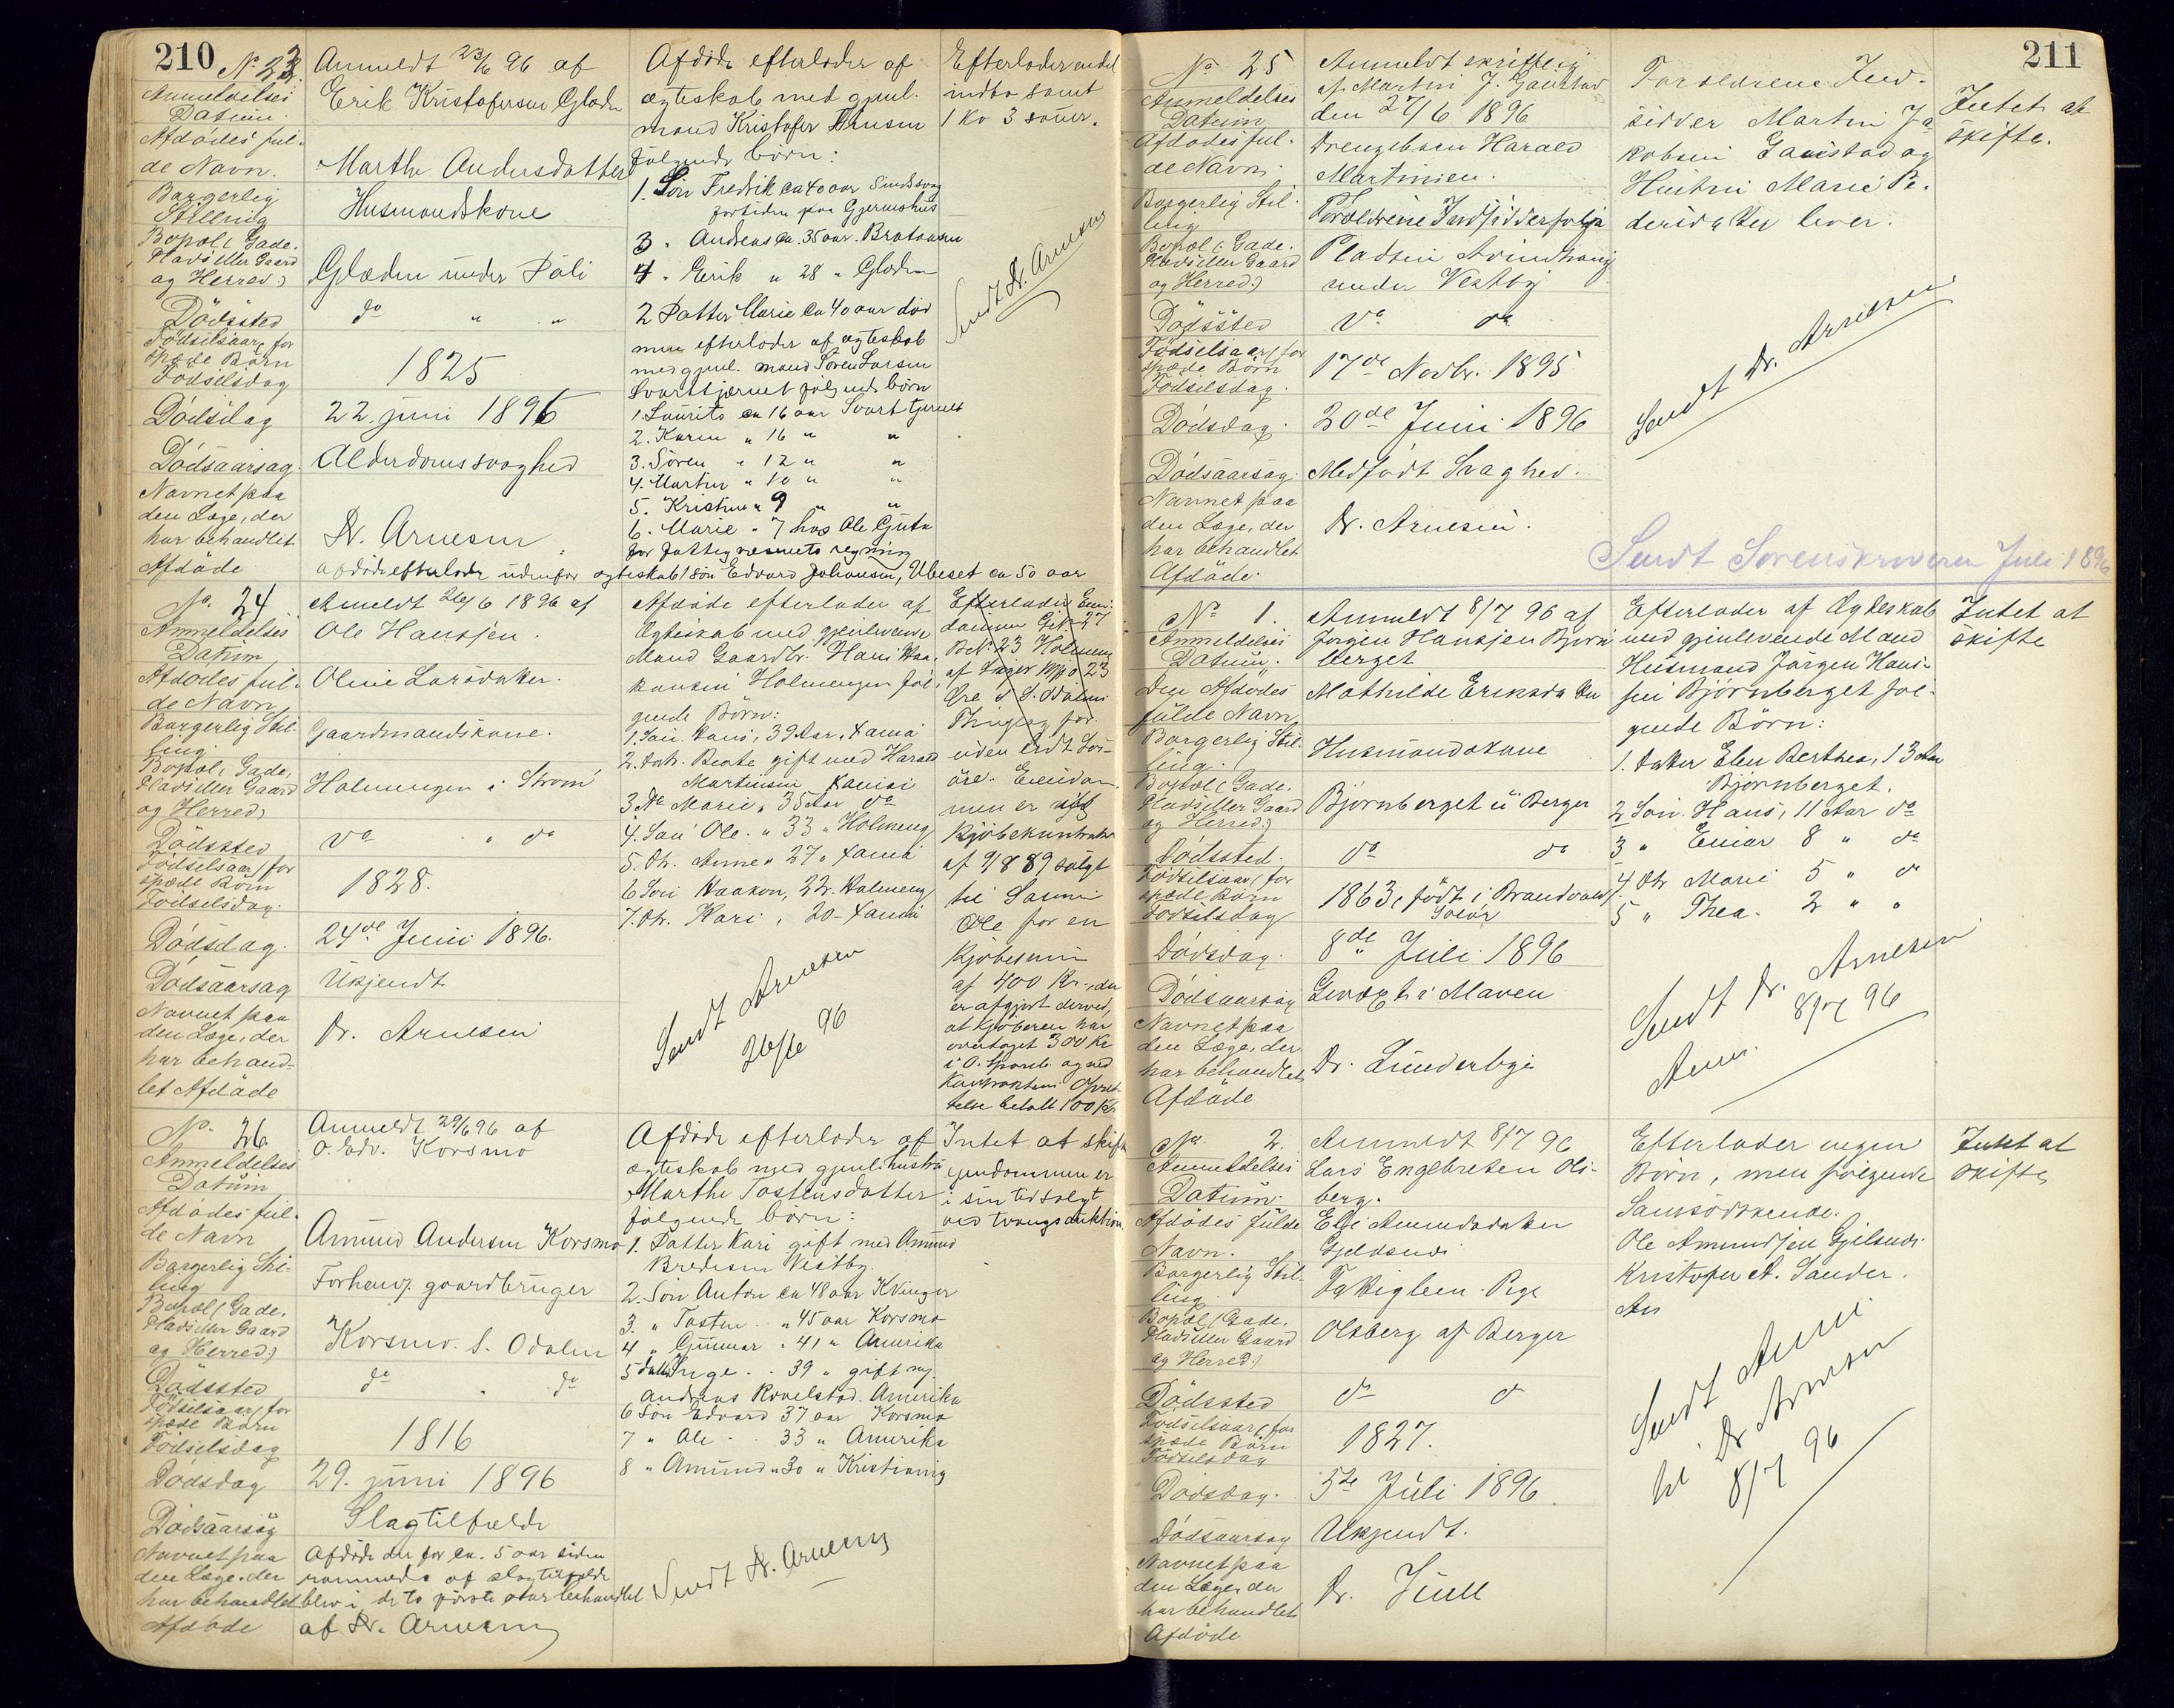 210
No 23
Anmeldelses
Datum.
Afdödes ful-
de Navn.
Borgerlig
Stilling
Bopæl (Gade.
Plads eller Gaard
og Herred.)
Dödssted
Födselsaar, for
spæde Börn
Födselsdag
Dödsdag
Dödsaarsag.
Navnet paa
den Læge, der
har behandlet
Afdöde
Anmeldt 23/6 96 af
Erik Kristofersen Gladen
Marthe Andersdatter
Husmandskone
Gladen under
do " "
1825
22. juni 1896
Alderdomssvaghed
Dr. Arnesen
Afdöde efterlader af
ægteskab med gjenl.
mand Kristofer Arnesen
følgende børn:
1. Søn Fredrik ca 40 aar Sindssvag
fortiden paa
3. " Andreas ca. 35 aar.
4. " Erik " 28 " Gladen
2 Datter Marie ca 40 aar död
men efterlader af ægteskab
med gjenl. mand Søren Larsen
Svarttjernet følgende børn
1. Laurits ca 16 aar Svarttjernet
2. Karen " 16 " "
3. Søren " 12 " "
4. Martin " 10 " "
5. Kristine " 9 " "
6. Marie " 7 hos Ole
for fattigvæsenets regning
afdöde efterlader udenfor ægteskab 1 søn Edvard Johansen, Ubeset ca 50 aar
Efterlader endel
indbo samt
1 ko 3 sauer.
Sendt Dr. Arnesen
No. 24
Anmeldelses
Datum
Afdödes ful-
de Navn
Borgerlig Stil-
ling.
Bopæl, Gade,
Plads eller Gaard
og Herred)
Dödssted
Födselsaar, for
spæde Börn
Födselsdag.
Dödsdag.
Dödsaarsag
Navnet paa
den Læge, der
har behand-
let Afdöde
Anmeldt 26/6 1896 af
Ole Hansjen.
Oline Larsdatter.
Gaardmandskone.
Holmengen i Strom
do " do
1828.
24de Juni 1896.
Ukjendt
Dr. Arnesen
Afdöde efterlader af
Ægteskab med gjenlevende
Mand Gaardbr. Hans Haa-
kensen Holmengen föl-
gende Börn:
1. Sön. Hans, 39 Aar,
2. Datr. Beate gift med Harald
Martinsen
3 Dtr Marie, 35 Aar do
4. Sön Ole. " 33 " Holmeng
5. Dtr. Anne " 27 "
6 Sön Haakon, 22. Holmeng
7. Dtr. Kari, 20
Sendt Arnesen
26/6 96
Efterlader Eien-
dommen
23 Holmeng
Thinglag for-
uden lidt Lös-
öre. Eiendom-
men er
Kjöbekontrakt
af 9/8 89 solgt
til Sønnen
Ole for en
Kjøbesum
af 400 Kr., der
er afgjort derved,
at Kjøberen har
overtaget 300 Kr
i O. Spareb. og ved
Kontraktens Opret-
telse betalt 100 Kr.
No. 26
Anmeldelses
Datum
Afdödes ful-
de Navn
Borgerlig Stil-
ling
Bopæl (Gade,
Plads eller Gaard
og Herred.)
Dödssted
Födselsaar, for
spæde Börn
Födselsdag
Dödsdag
Dödsaarsag
Navnet paa
den Læge, der
har behandlet
Afdöde
Anmeldt 29/6 96 af
O. Edv. Korsmo
Amund Andersen Korsmo
Forhenv. gaardbruger
Korsmo. S. Odalen
do " do
1816
29. juni 1896
Slagtilfælde
Afdöde der for ca. 5 aar siden
rammedes af slagtilfælde
blev i de to förste aar behandlet
af Dr. Arnesen
Afdöde efterlader af
ægteskab med gjenl. hustru
Marthe Tostensdatter
følgende børn:
1. Datter Kari gift med Amund
Bredesen Vestby.
2. Søn Anton ca 48 aar Kvinger
3. " Tosten. " 45 aar Korsmo
4 " Gunnar " 41 " Amerika
5 datter Inge. " 39 " gift m.
Andreas Rovelstad. Amerika
6 Søn Edvard 37 aar Korsmo
7 " Ole " 33 " Amerika
8 " Amund " 30 " Kristiania
Sendt Dr. Arnesen
Intet at skifte
ejendommen er
i sin tid solgt
ved tvangsauktion.
211
No 25
Anmeldelses
Datum
Afdödes ful-
de Navn
Borgerlig Stil-
ling
Bopæl (Gade.
Plads eller Gaard
og Herred.)
Dödssted
Födselsaar (for
spæde Börn
Födselsdag.
Dödsdag.
Dödsaarsag.
Navnet paa
den Læge, der
har behandlet
Afdöde.
Anmeldt skriftlig
af Martin J. Gaustad
den 27/6 1896
Drengebarn Harald
Martinsen.
Forældrene
Pladsen
under Vestby
do do
17de Novbr. 1895
20de Juni 1896
Medfödt Svaghed.
Dr. Arnesen.
Forældrene Ind-
sidder Martin Ja-
kobsen Gaustad og
Hustru Marie Pe-
dersdatter lever.
Intet at
skifte.
Sendt Dr. Arnesen
Sendt Sorenskriveren Juli 1896
No 1.
Anmeldelses
Datum.
Den Afdödes
fulde Navn
Borgerlig Stil-
ling.
Bopæl (Gade,
Plads eller Gaard
og Herred.)
Dödssted.
Födselsaar, for
spæde Börn
Födselsdag
Dödsdag.
Dödsaarsag
Navnet paa
den Læge, der
har behandlet
Afdöde
Anmeldt 8/7 96 af
Jørgen Hansjen Bjørn-
berget
Mathilde Eriksdatter
Husmandskone
Bjørnberget u Berger
do do
1863, født i Brandvold,
Solør
8de Juli 1896
i Maven
Dr. Lunderbye
Efterlader af Ægteskab
med gjenlevende Mand
Husmand Jørgen Han-
sen Bjørnberget föl-
gende Börn:
1. Datter Elen Berthea, 13 Aar
Bjørnberget.
2 Sön. Hans, 11 Aar do
3 " Einar 8 " do
4 Dtr Marie 5 " do
5 " Thea. 2 " "
Sendt Dr. Arnesen
8/7 96
Intet at
skifte
No. 2.
Anmeldelses
Datum.
Afdödes fulde
Navn.
Borgerlig Stil-
ling.
Bopæl (Gade.
Plads eller Gaard
og Herred.)
Dödssted
Födselsaar, for
spæde Börn
Födselsdag
Dödsdag.
Dödsaarsag
Navnet paa
den Læge, der
har behandlet
Afdöde
Anmeldt 8/7 96
Lars Engebretsen Ols-
berg.
Eli Amundsdatter
Fattiglem. Pige
Olsberg af Berger
do do
1827.
5te Juli 1896.
Ukjendt.
Dr. Juell
Efterlader ingen
Börn, men følgende
Samsödskende.
Ole Amundsen
Kristofer A. Sander.
Sendt
til Dr Arnesen
8/7 96
Intet at
skifte